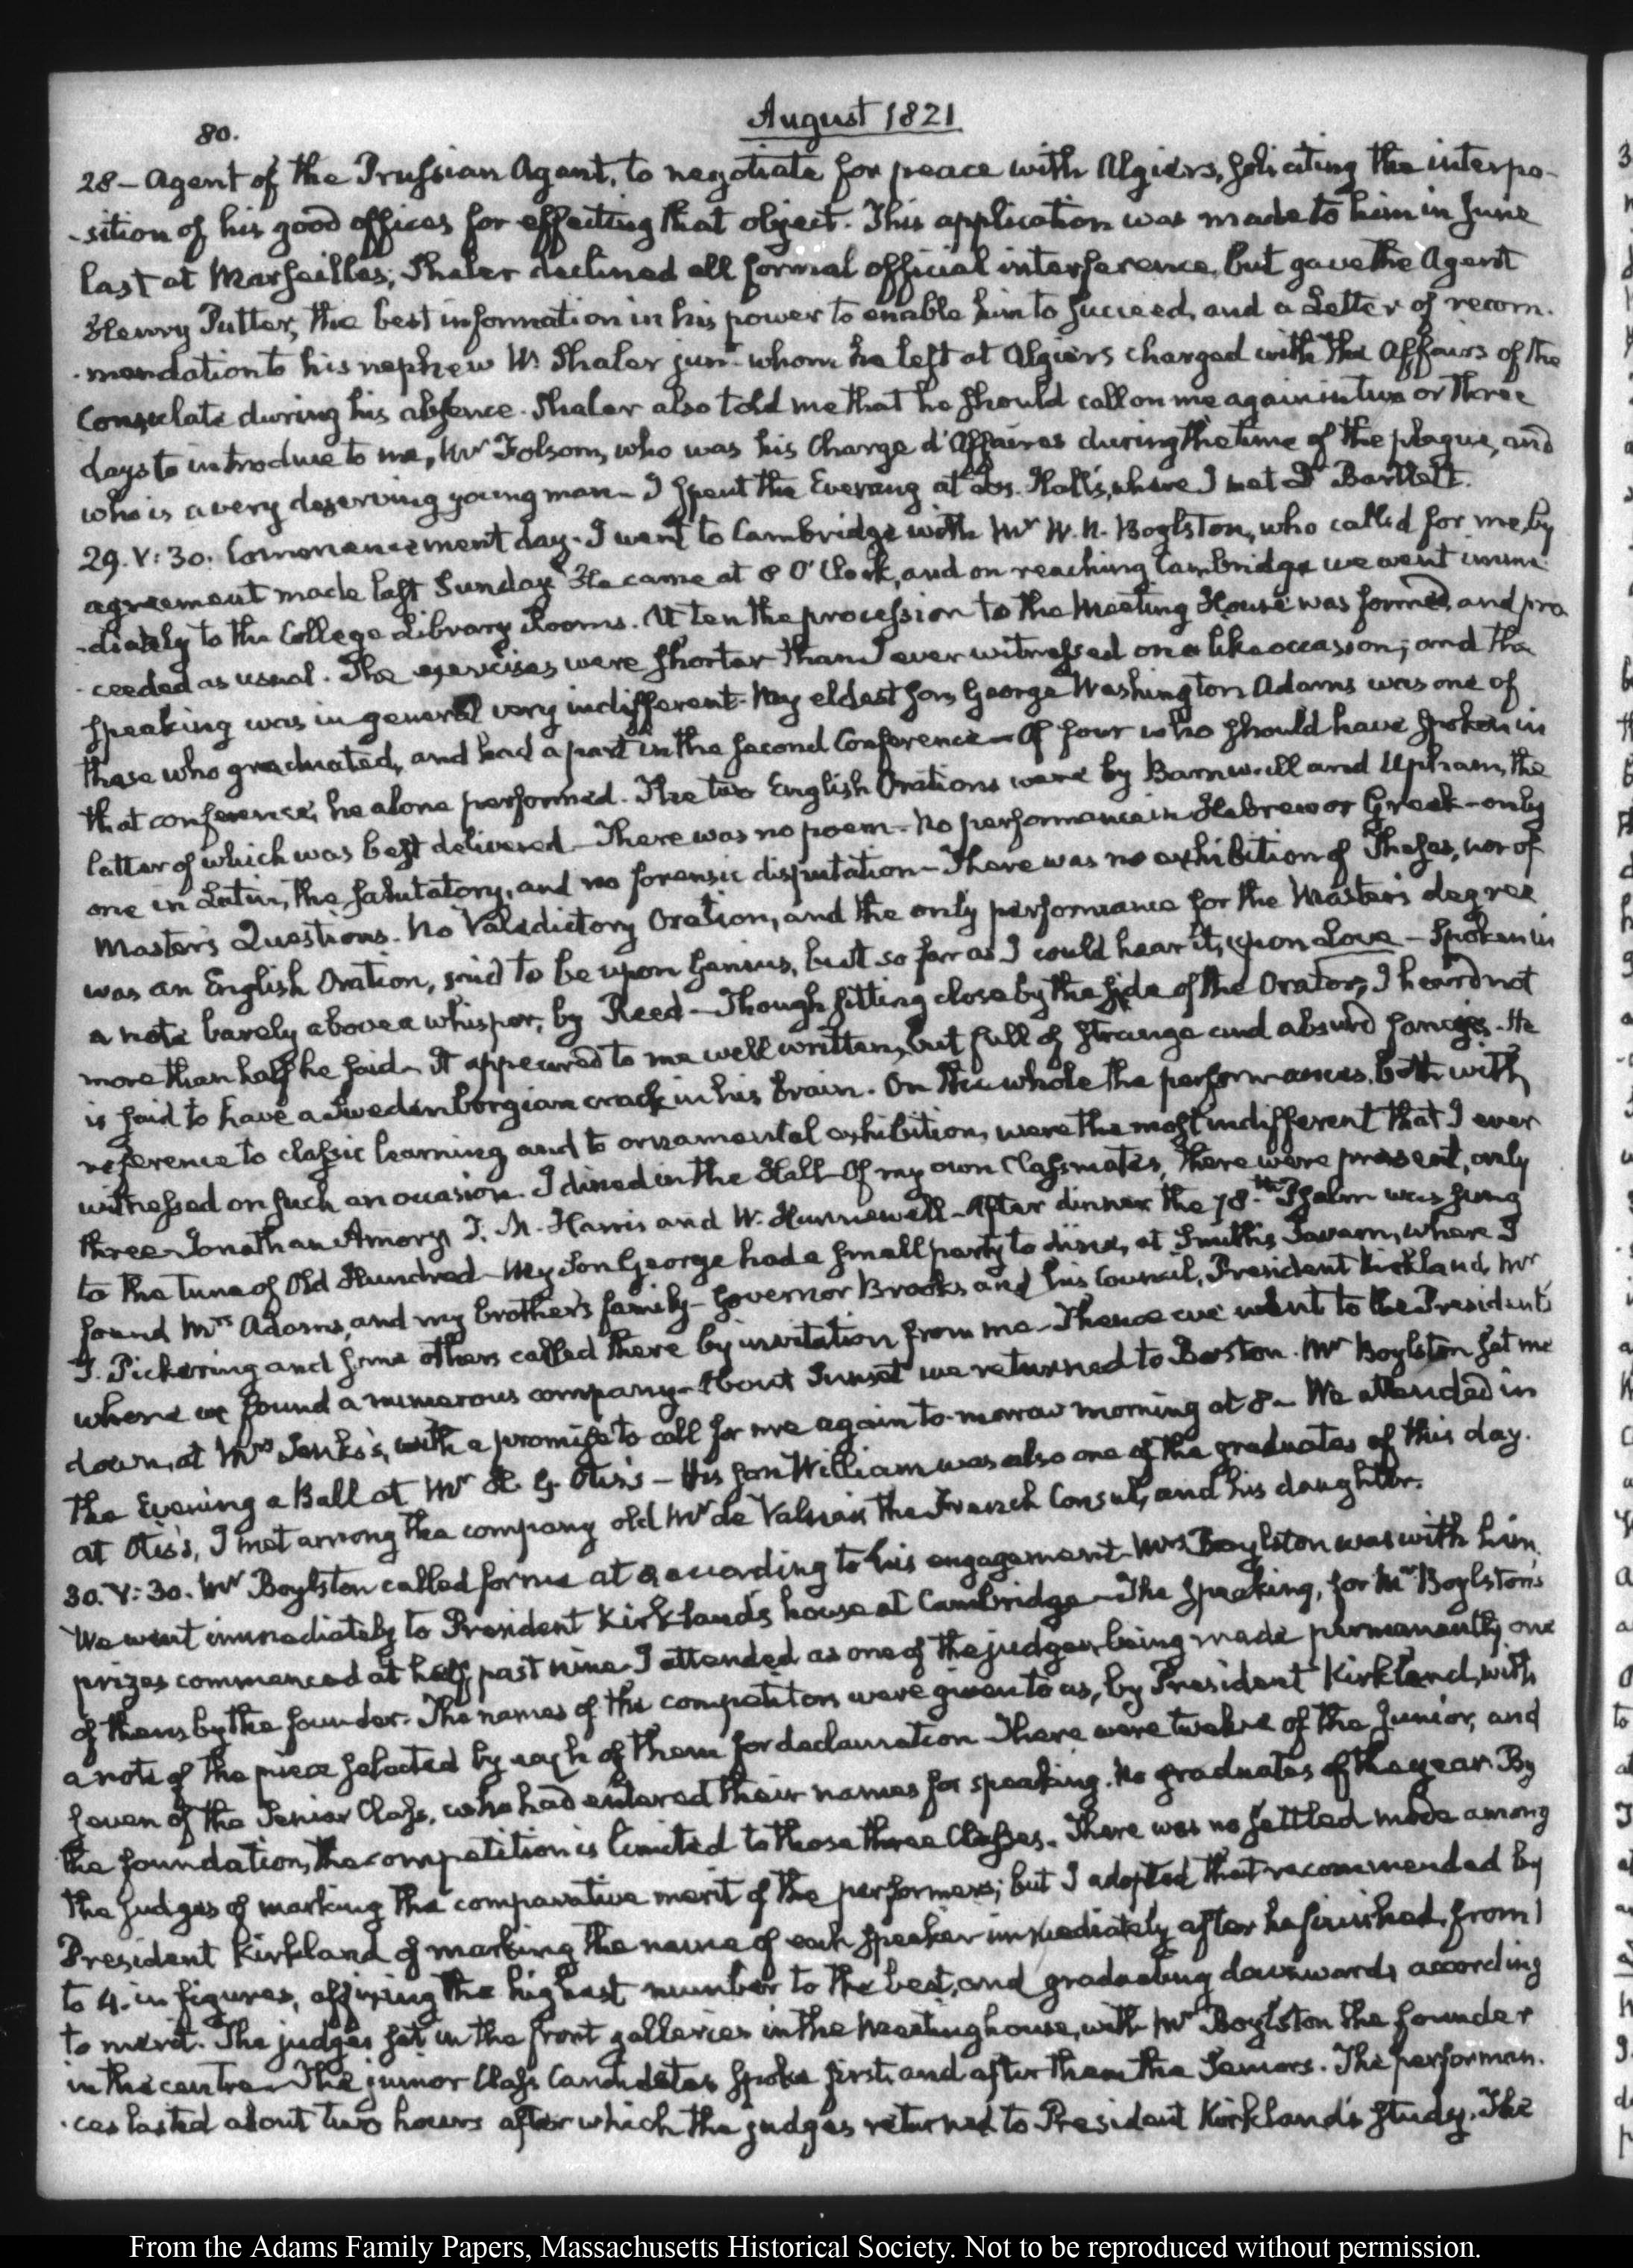 80.
August 1821
28 – Agent of the Prussian Agent, to negotiate for peace with Algiers, soliciting the interpo-
-sition of his good offices for effecting that object. This application was made to him in June
last at Marseilles; Shaler declined all formal official interference, but gave the Agent
Henry Putter, the best information in his power to enable him to succeed, and a Letter of recom-
-mendation to his nephew W. Shaler junr. whom he left at Algiers charged with the Affairs of the
Consulate during his absence. Shaler also told me that he should call on me again in two or three
days to introduce to me, Mr Folsom, who was his Charge d'Affaires during the time of the plague, and
who is a very deserving young man – I spent the Evening at Jos. Hall's, where I met Dr Bartlett.
29. V: 30. Commencement day. I went to Cambridge with Mr W. N. Boylston, who called for me, by
agreement made last Sunday. He came at 8 O'Clock, and on reaching Cambridge we went imme-
-diately to the College Library Rooms. At ten the procession to the Meeting House was formed, and pro
-ceeded as usual. The exercises were shorter than I ever witnessed on a like occasion; and the
speaking was in general very indifferent – My eldest son, George Washington Adams was one of
those who graduated, and had a part in the second Conference – Of four who should have spoken in
that conference, he alone performed. The two English Orations were by Barnwell and Upham, the
latter of which was best delivered – There was no poem – No performance in Hebrew or Greek – only
one in Latin, the salutatory, and no forensic disputation – There was no exhibition of Theses, nor of
Master's Questions. No Valedictory Oration, and the only performance for the Master's degree
was an English Oration, said to be upon Genius, but so far as I could hear it, upon Love – Spoken in
a note barely above a whisper, by Reed – Though sitting close by the side of the Orator, I heard not
more than half he said – It appeared to me well written, but full of strange and absurd fancies. He
is said to have a Swedenborgian crack in his brain. On the whole the performances, both with
reference to classic learning and to ornamental exhibition, were the most indifferent that I ever
witnessed on such an occasion. I dined in the Hall. Of my own Classmates, there were present, only
three – Jonathan Amory, T. M. Harris and W. Hunnewell – After dinner the 78th. Psalm was sung
to the tune of Old Hundred – My Son George had a small party to dine, at Smith's Tavern, where I
found Mrs Adams, and my brother's family – Governor Brooks and his Council, President Kirkland, Mr
T. Pickering and some others called there by invitation from me – Thence we went to the President's
where we found a numerous company – About Sunset we returned to Boston. Mr Boylston set me
down, at Mrs Jenks's, with a promise to call for me again to-morrow morning at 8 – We attended in
the Evening a Ball at Mr H. G. Otis's – His son William was also one of the graduates of this day.
at Otis's, I met among the company old Mr de Valnais the French Consul, and his daughter.
30. V: 30. Mr Boylston called for me at 8 according to his engagement – Mrs Boylston was with him.
We went immediately to President Kirkland's house at Cambridge – The speaking, for Mr Boylston's
prizes commenced at half past nine – I attended as one of the judges, being made permanently one
of them by the founder. The names of the competitors were given to us, by President Kirkland, with
a note of the piece selected by each of them for declamation – There were twelve of the Junior, and
seven of the Senior Class, who had entered their names for speaking. No graduates of the year. By
the foundation, the competition is limited to those three Classes. There was no settled mode among
the judges of marking the comparative merit of the performers; but I adopted that recommended by
President Kirkland of marking the name of each speaker immediately after he finished, from 1
to 4. in figures, affixing the highest number to the best, and graduating downwards according
to merit. The judges sat in the front galleries in the Meeting house, with Mr Boylston the founder
in the centre – The junior Class Candidates spoke first, and after them the Seniors. The performan-
-ces lasted about two hours after which the judges returned to President Kirkland's study. The
From the Adams Family Papers, Massachusetts Historical Society. Not to be reproduced without permission.